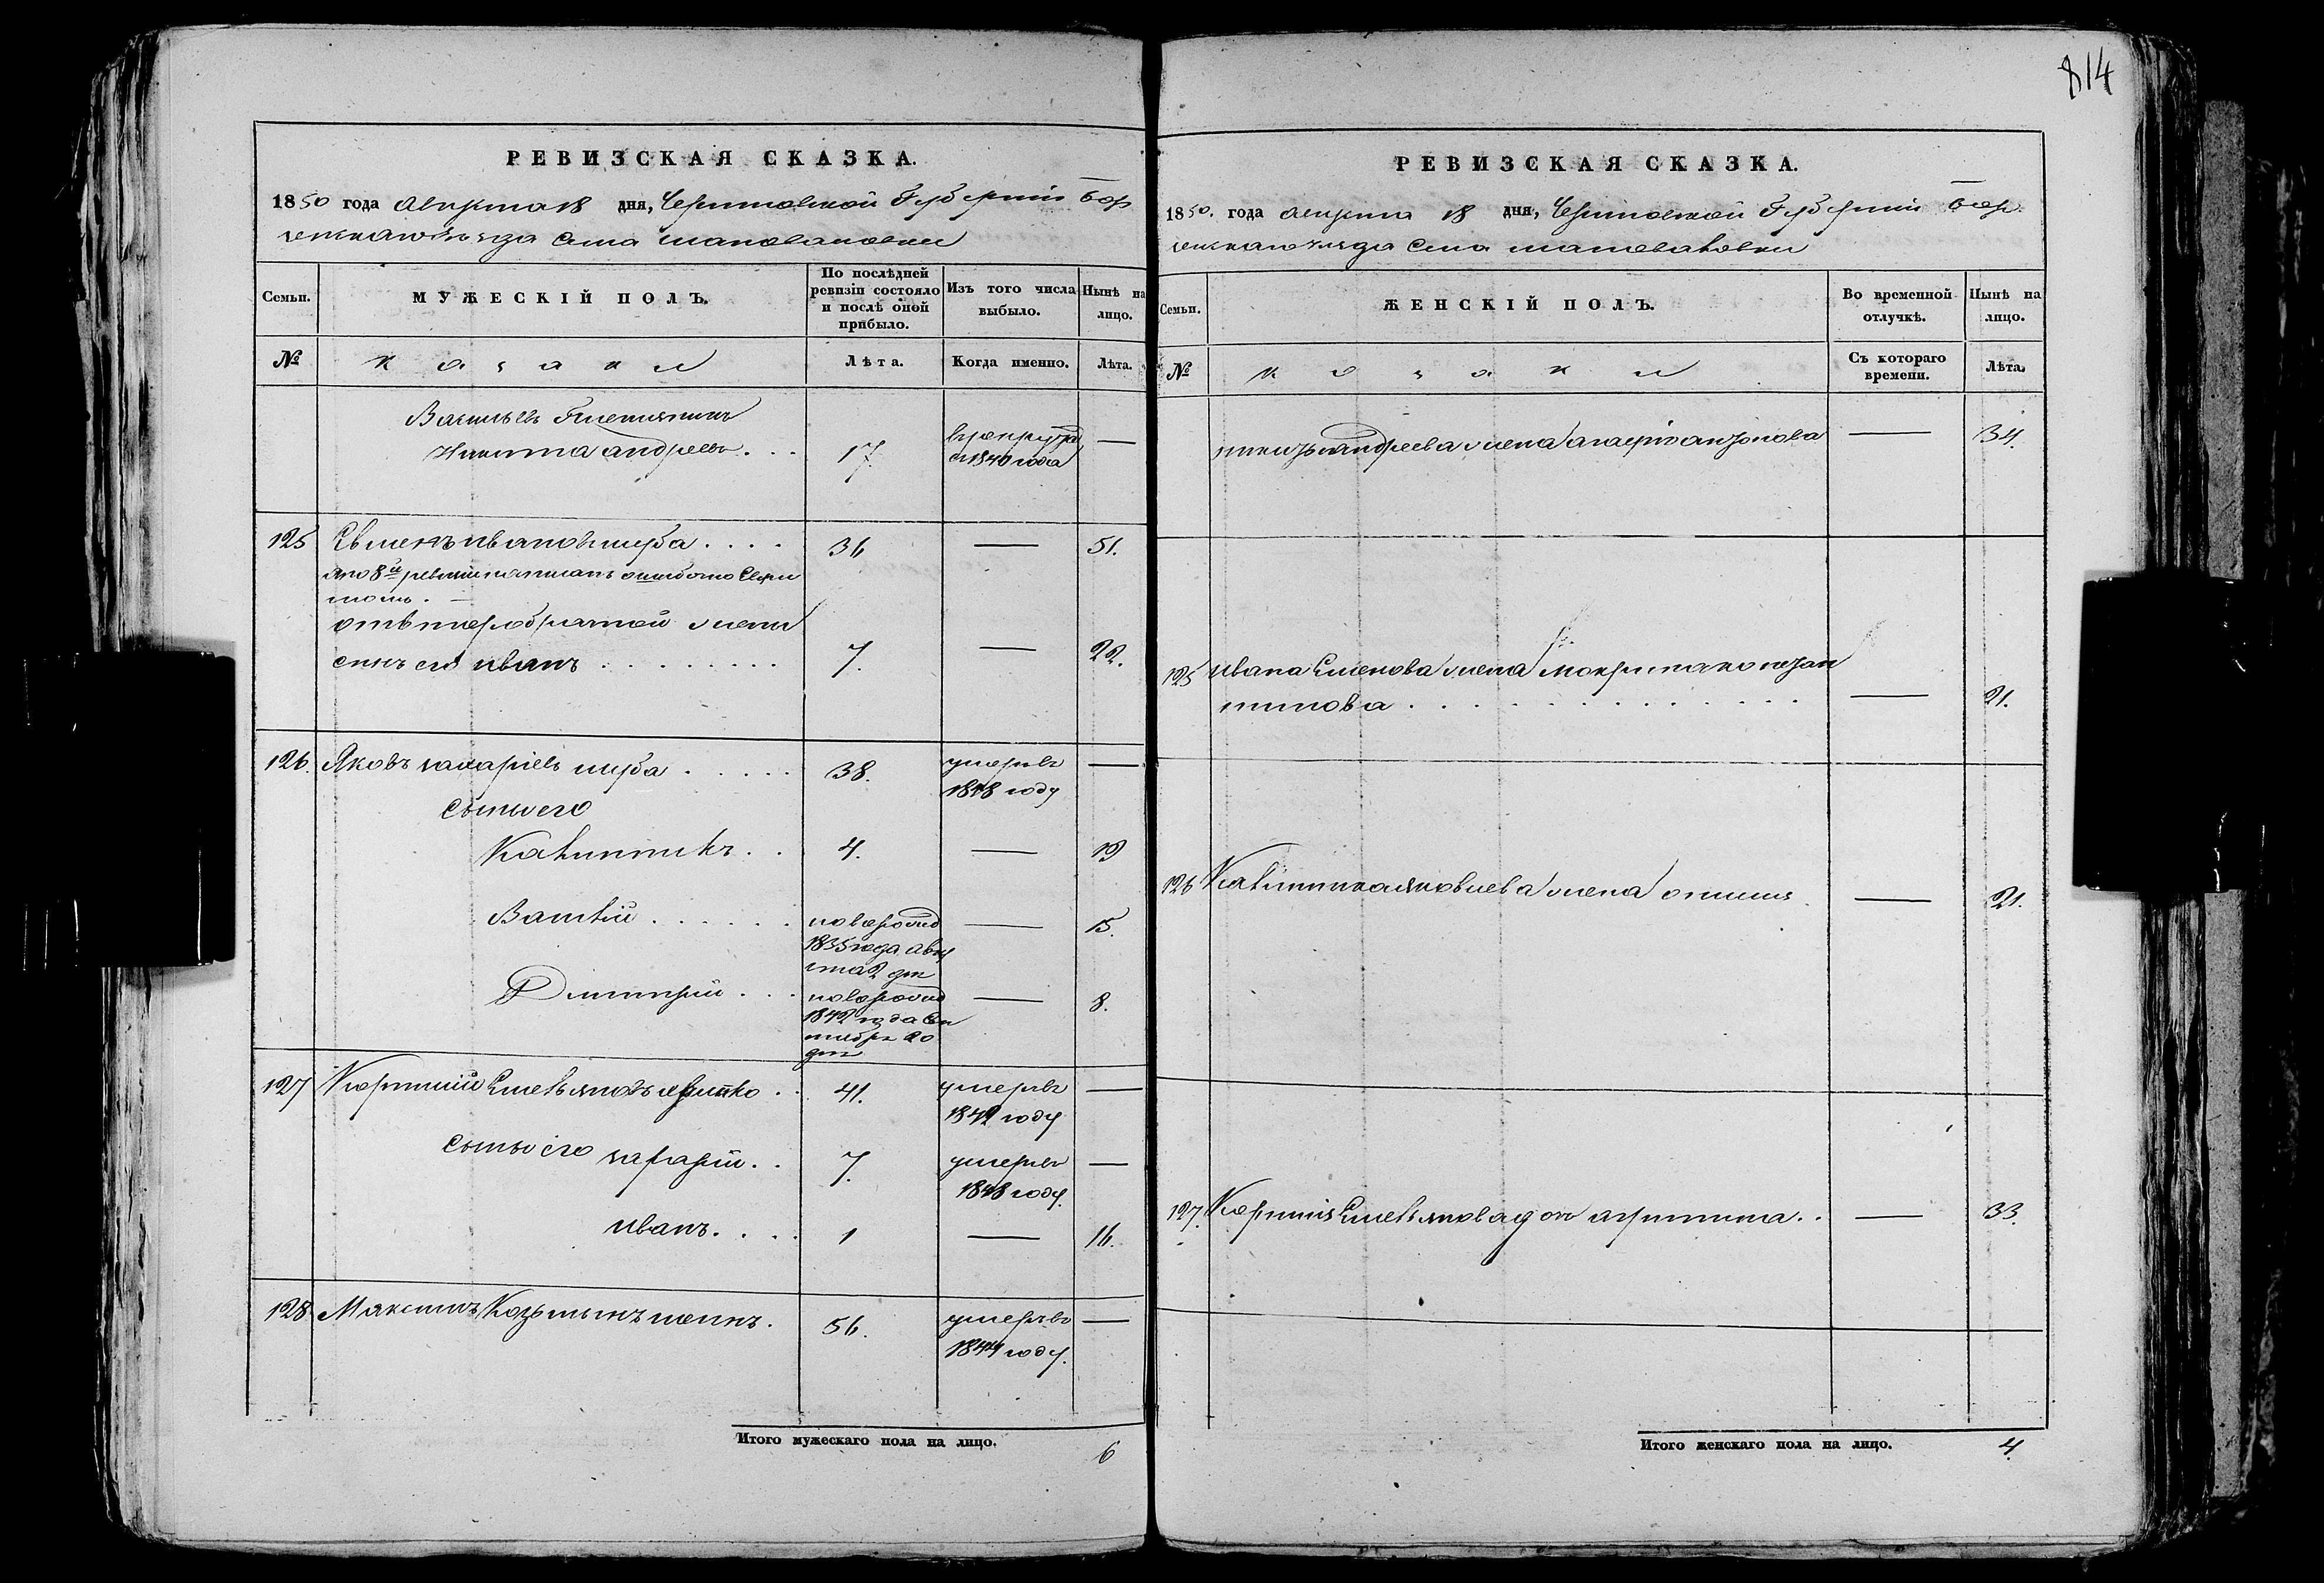 814
РЕВИЗСКАЯ СКАЗКА.
1850 года августа 18 дня, Черниговской Губернии Бор
зенскаго уезда села Шаповаловки
Семьи.
МУЖЕСКІЙ ПОЛЪ.
По послѣдней
ревизіи состояло
и послѣ оной
прибыло.
Изъ того числа
выбыло.
Нынѣ на
лицо.
№
козаки
Лѣта.
Когда именно.
Лѣта.
Васильевъ
Никита Андреевъ . . . 17. в рекрутах —
с 1840 года
125 Семенъ Ивановъ шуба . . . . 36 — 51.
по 8й ревизіи написанъ ошибочно
отъ первобрачной жены
сынъ его Иванъ . . . . . . . . . 7. — 22.
126. Яковъ Захаріевъ шуба . . . . . 38. умеръ в —
1848 году
Сыны его
Каленникъ . . 4. — 19
Василій . . . . . . новорожд — 15.
1835 года авгу
ста 2 дня
Дмитрій . . . новорожд — 8.
1842 года Сен
тября 20
дня
127 Емельяновъ . . 41. умеръ в —
1842 году
Сыны его Захарій . . 7. умеръ в —
1848 году.
Иванъ. . . . 1 — 16.
128 Максимъ Козьминъ . 56. умеръ в —
1844 году.
Итого мужескаго пола на лицо. 6
РЕВИЗСКАЯ СКАЗКА.
1850. года августа 18 дня, Черниговской Губернии Бор
зенскаго уезда села Шаповаловки
Семьи.
ЖЕНСКІЙ ПОЛЪ.
Во временной
отлучкѣ.
Нынѣ на
лицо.
№
козаки
Съ котораго
времени.
Лѣта.
Никиты Андреева жена — 34.
125 Ивана Семенова жена
— 21.
126 Каленника Яковлева жена — 21.
127. Емельянова доч . . — 33.
Итого женскаго пола на лицо. 4.